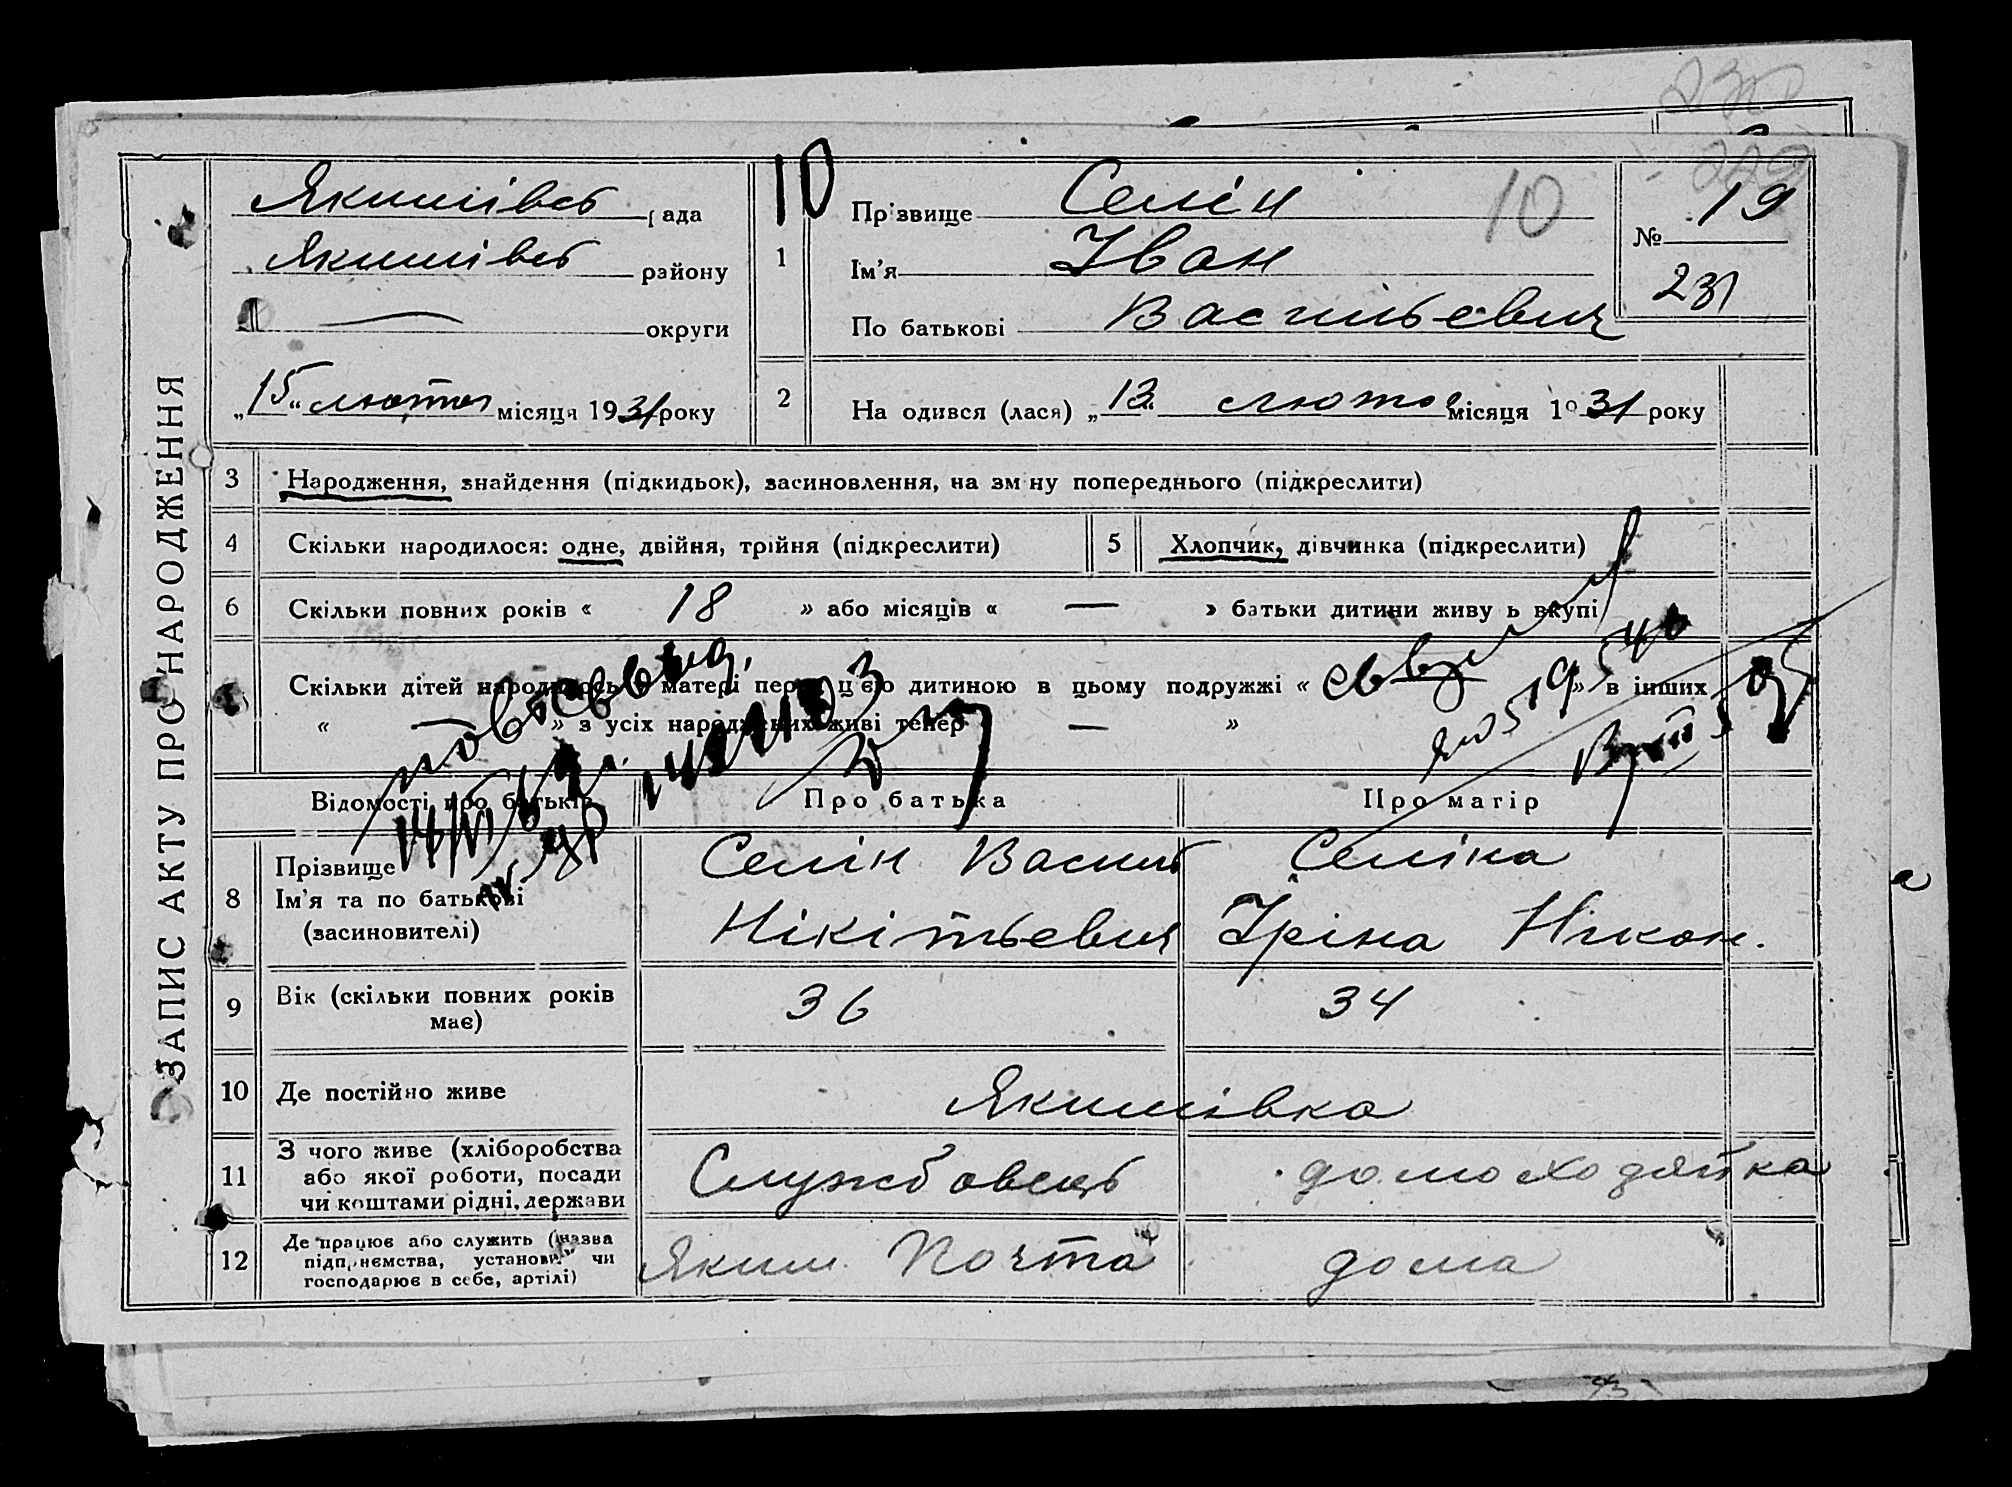 ЗАПИС АКТУ ПРО НАРОДЖЕННЯ
Якимівсь рада
Якимівсь району
округи
„15“ лютого місяця 1931 року
10
1 Прізвище Селін 10
Ім'я Іван
По батькові Васильевич
№ 19
231
229
2 Народився (лася) „13“ лютого місяця 1931 року
3 Народження, знайдення (підкидьок), засиновлення, на зміну попереднього (підкреслити)
4 Скільки народилося: одне, двійня, трійня (підкреслити)
5 Хлопчик, дівчинка (підкреслити)
6 Скільки повних років « 18 » або місяців « — » батьки дитини живуть вкупі
Скільки дітей народилось у матері перед цією дитиною в цьому подружжі « » в інших
« — » з усіх народжених живі тепер — »
Відомості про батьків Про батька Про матір
8 Прізвище
Ім'я та по батькові
(засиновителі)
Селін Василь
Нікітьевич
Селіна
Іріна Нікон.
9 Вік (скільки повних років має) 36 34
10 Де постійно живе Якимівка
11 З чого живе (хліборобства
або якої роботи, посади
чи коштами рідні, держави
Службовець домоходяйка
12 Де працює або служить (назва
підприємства, установи чи
господарює в себе, артілі)
Яким. Почта дома